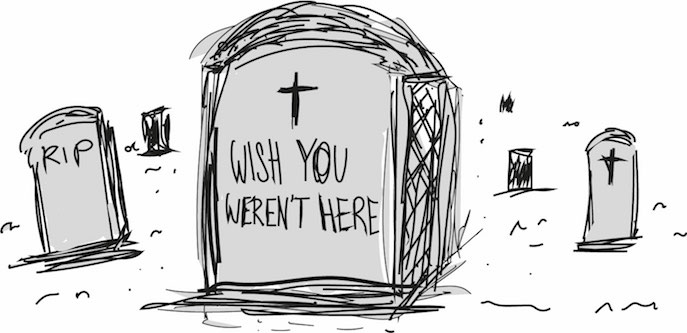 RIP
WISH YOU
WEREN'T HERE